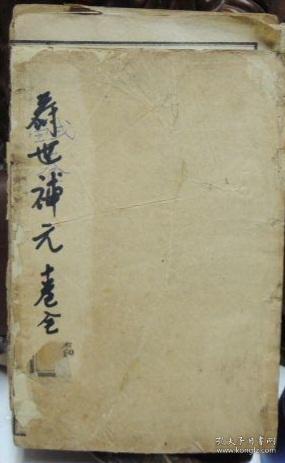 世補元 十卷全
孔夫子旧书网
www.kongfz.com